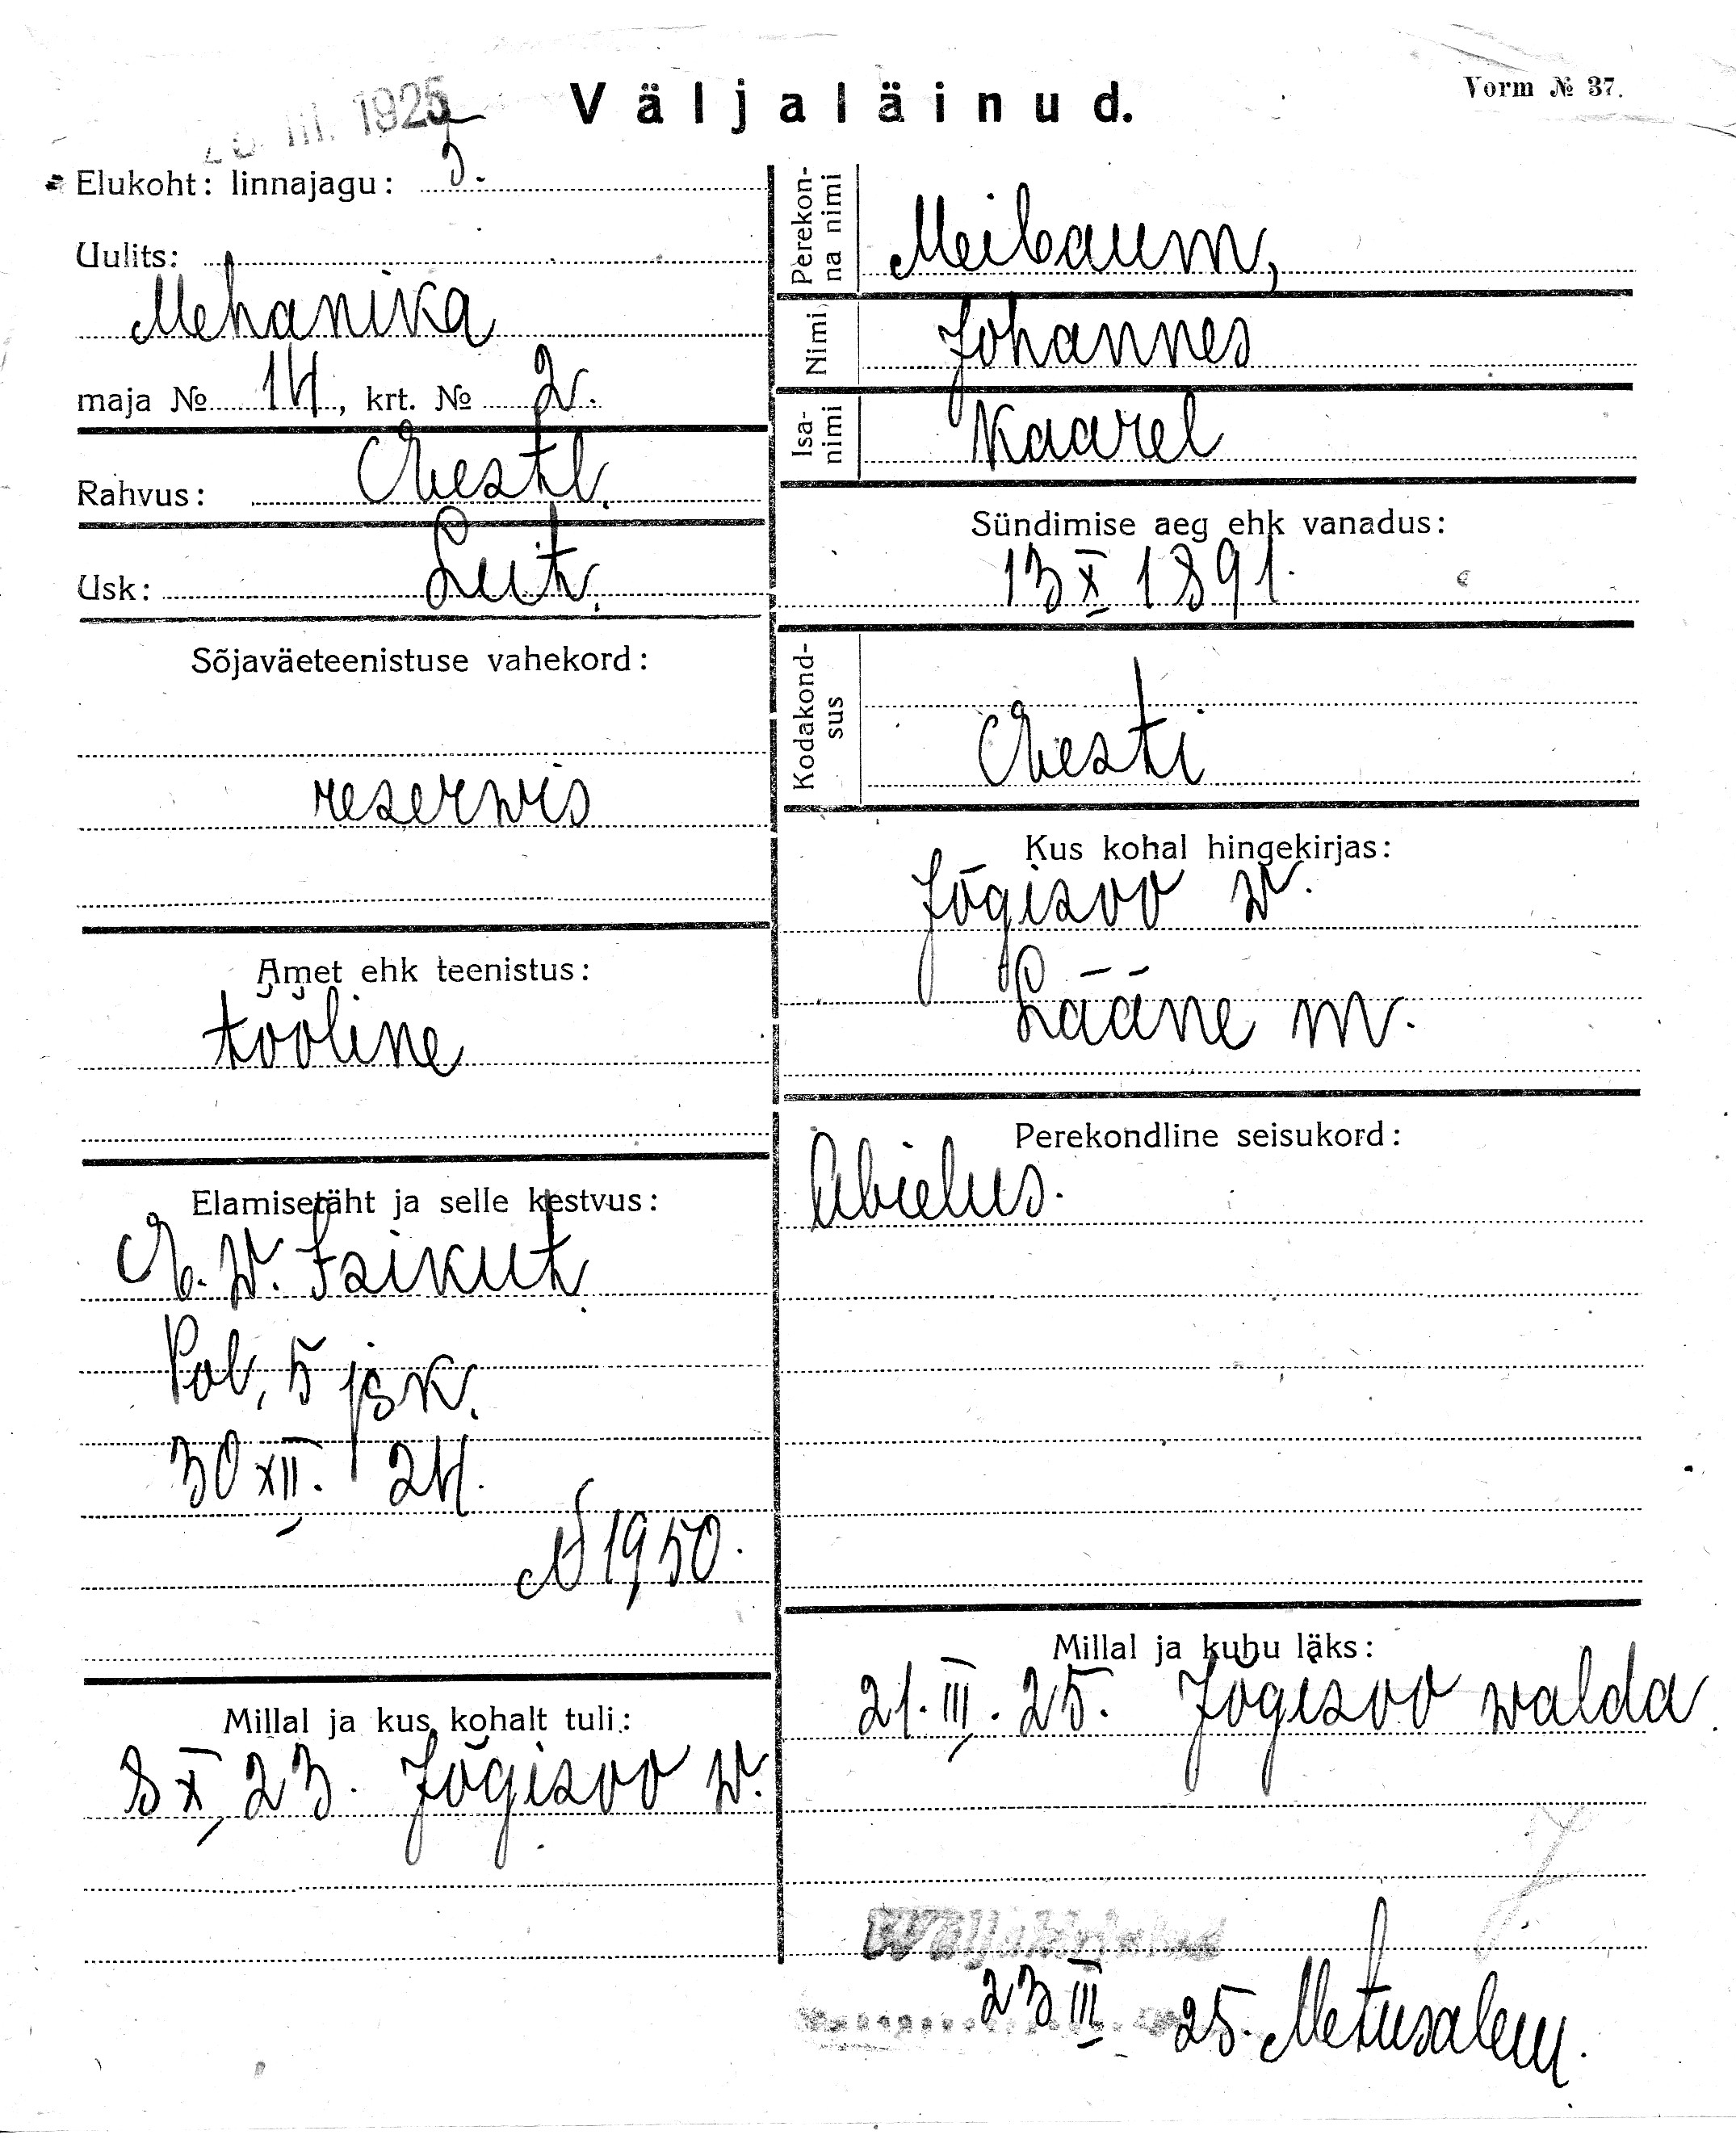 Väljaläinud.
Vorm № 37.
III. 1925
Elukoht: linnajagu: 3.
Uulits:
Mehanika
maja № 14, krt. № 2.
Rahvus: Eestl.
Usk: Lut.
Sõjaväeteenistuse vahekord:
reservis
Amet ehk teenistus:
tööline
Elamisetäht ja selle kestvus:
E. W. Isikut.
Pol, 5 jsk.
30 XII. 24.
№ 1950.
Millal ja kus kohalt tuli:
8 X 23. Jõgisoo w.
Perekonna nimi
Meibaum,
Nimi
Johannes
Isanimi
Kaarel
Sündimise aeg ehk vanadus:
13 X 1891.
Kodakondsus
Eesti
Kus kohal hingekirjas:
Jõgisoo w.
Lääne m.
Perekondline seisukord:
Abielus.
Millal ja kuhu läks:
21. III. 25. Jõgisoo walda.
23 III 25. Metusalem.